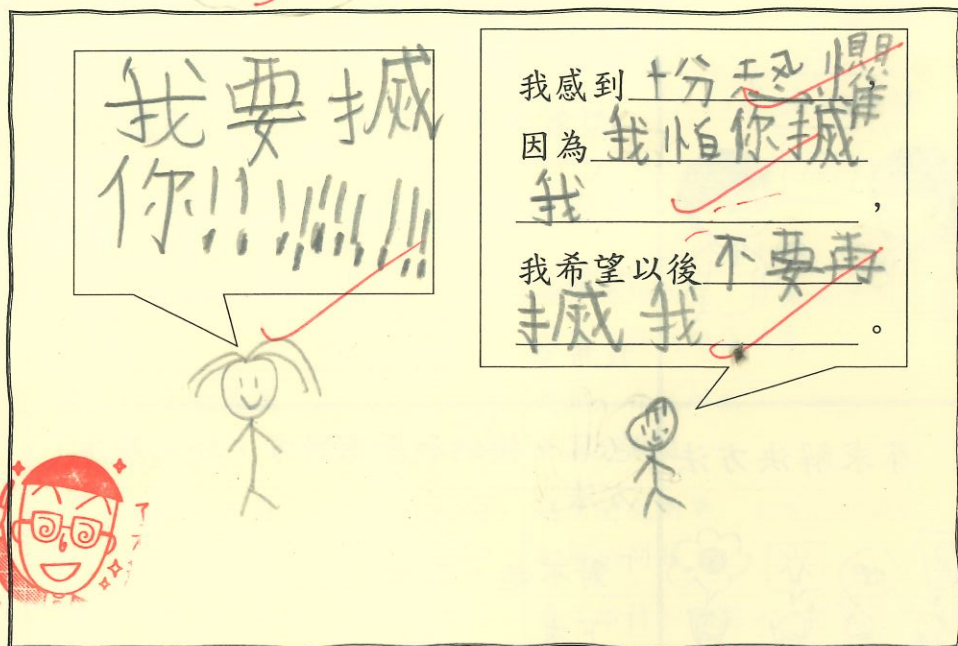 我要搣
你!!!!!!!!!!
我感到十分恐懼，
因為我怕你搣
我，
我希望以後不要再
搣我。